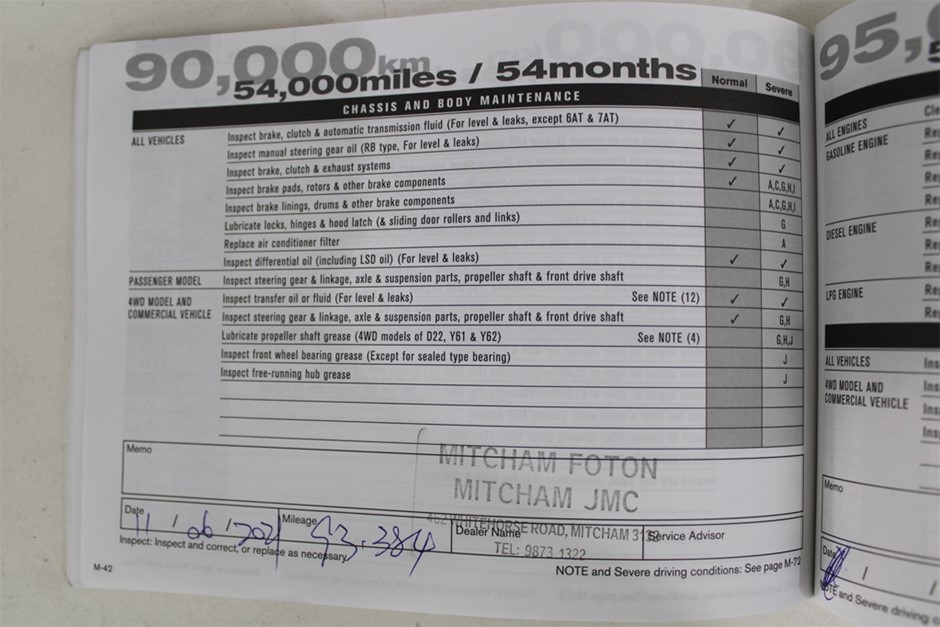 90,000km
54,000miles / 54months
Normal
Severe
CHASSIS AND BODY MAINTENANCE
ALL VEHICLES
Inspect brake, clutch & automatic transmission fluid (For level & leaks, except 6AT & 7AT) ✓ ✓
Inspect manual steering gear oil (RB type, For level & leaks) ✓ ✓
Inspect brake, clutch & exhaust systems ✓ ✓
Inspect brake pads, rotors & other brake components ✓ A,C,G,H,I
Inspect brake linings, drums & other brake components A,C,G,H,I
Lubricate locks, hinges & hood latch (& sliding door rollers and links) G
Replace air conditioner filter A
Inspect differential oil (including LSD oil) (For level & leaks) ✓ ✓
PASSENGER MODEL Inspect steering gear & linkage, axle & suspension parts, propeller shaft & front drive shaft G,H
4WD MODEL AND Inspect transfer oil or fluid (For level & leaks) See NOTE (12) ✓ ✓
COMMERCIAL VEHICLE Inspect steering gear & linkage, axle & suspension parts, propeller shaft & front drive shaft ✓ G,H
Lubricate propeller shaft grease (4WD models of D22, Y61 & Y62) See NOTE (4) G,H,J
Inspect front wheel bearing grease (Except for sealed type bearing) J
Inspect free-running hub grease J
Memo
MITCHAM FOTON
MITCHAM JMC
WHITEHORSE ROAD, MITCHAM
TEL: 9873 1322
Date 11 / 06 /
Mileage 93.384
Dealer Name
Service Advisor
Inspect: Inspect and correct, or replace as necessary.
M-42
NOTE and Severe driving conditions: See page M-72
95,
ALL ENGINES
GASOLINE ENGINE
DIESEL ENGINE
LPG ENGINE
ALL VEHICLES
4WD MODEL AND
COMMERCIAL VEHICLE
Memo
Date / /
NOTE and Severe driving